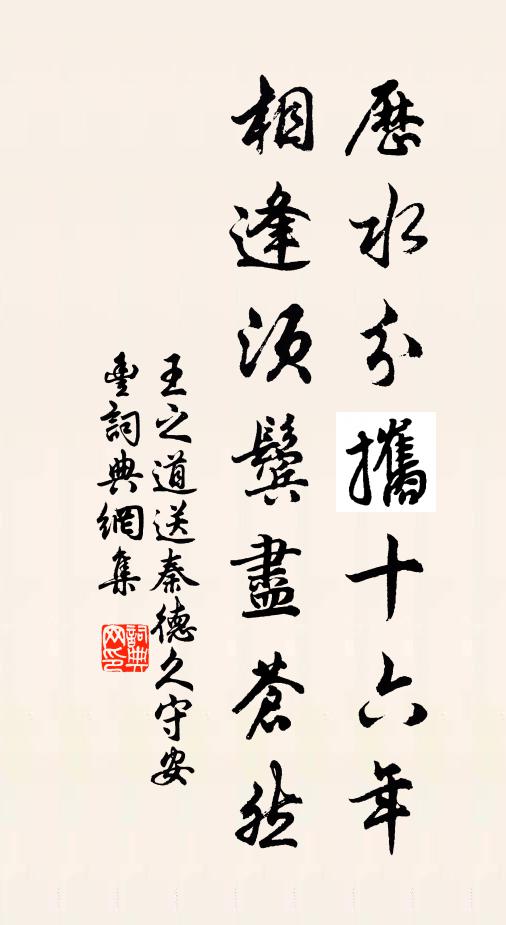 歷水分攜十六年
相逢須鬢盡蒼然
王之道送秦德久守安
豊詞典網集
詞典網印